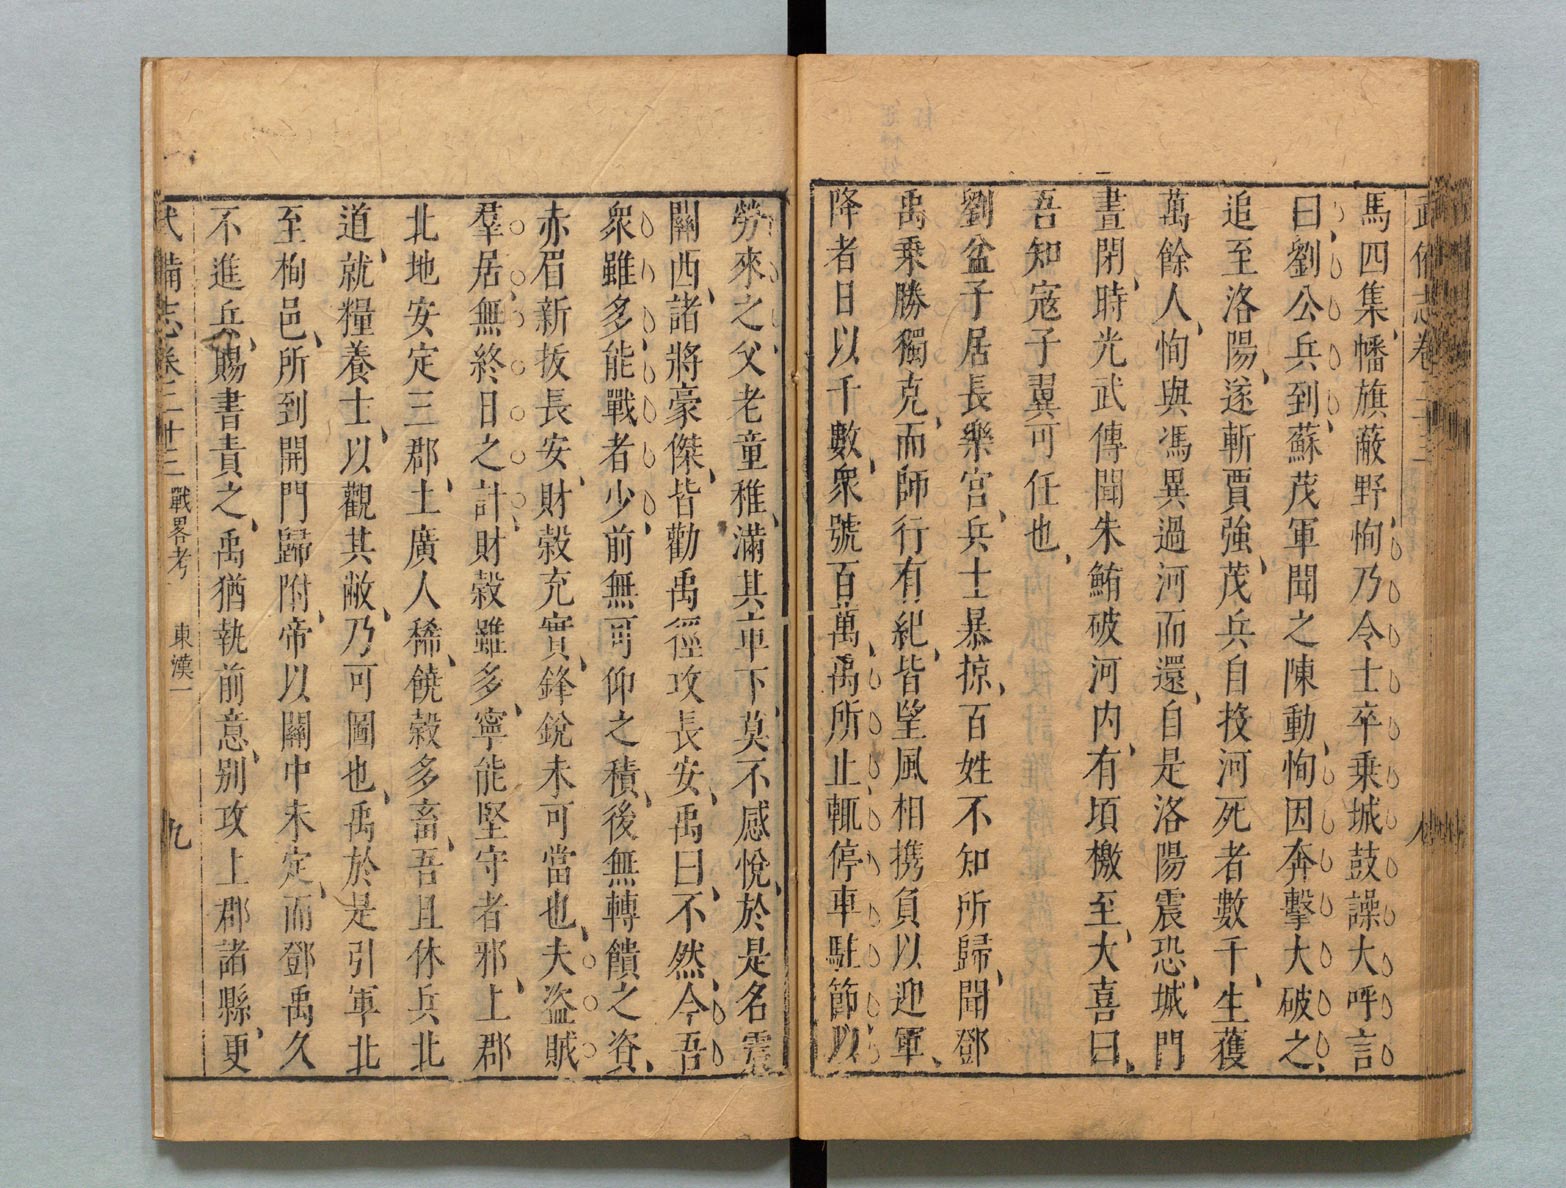 武備志卷二十三
八
馬四集、幡旗蔽野、恂乃令士卒乘城鼓譟大呼言
曰劉公兵到、蘇茂軍聞之陳動、恂因奔擊大破之、
追至洛陽、遂斬賈強、茂兵自投河死者數千、生獲
萬餘人、恂與馮異過河而還、自是洛陽震恐、城門
晝閉、時光武傳聞朱鮪破河内、有頃檄至、大喜曰、
吾知寇子翼可任也、
劉盆子居長樂宮、兵士暴掠、百姓不知所歸、聞鄧
禹乘勝獨克、而師行有紀、皆望風相携負以迎軍、
降者日以千數、衆號百萬、禹所止輒停車駐節以
勞來之父老童稚、滿其車下、莫不感悅、於是名震
關西、諸將豪傑、皆勸禹徑攻長安、禹曰、不然、今吾
衆雖多、能戰者少、前無可仰之積、後無轉饋之資、
赤眉新拔長安、財穀充實、鋒銳未可當也、夫盜賊
羣居、無終日之計、財穀雖多、寧能堅守者邪、上郡
北地安定三郡、土廣人稀、饒穀多畜、吾且休兵北
道、就糧養士、以觀其敝、乃可圖也、禹於是引軍北
至栒邑、所到開門歸附、帝以關中未定、而鄧禹久
不進兵、賜書責之、禹猶執前意、别攻上郡諸縣、更
武備志卷二十三 戰畧考 東漢一
九